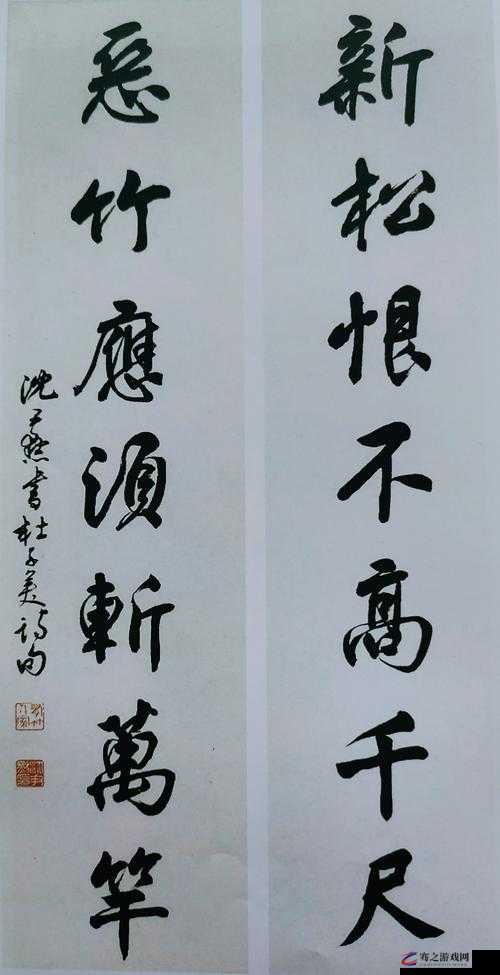 新松恨不高千尺
惡竹應須斬萬竿
沈尹默書杜子美詩句
骞之游戏网